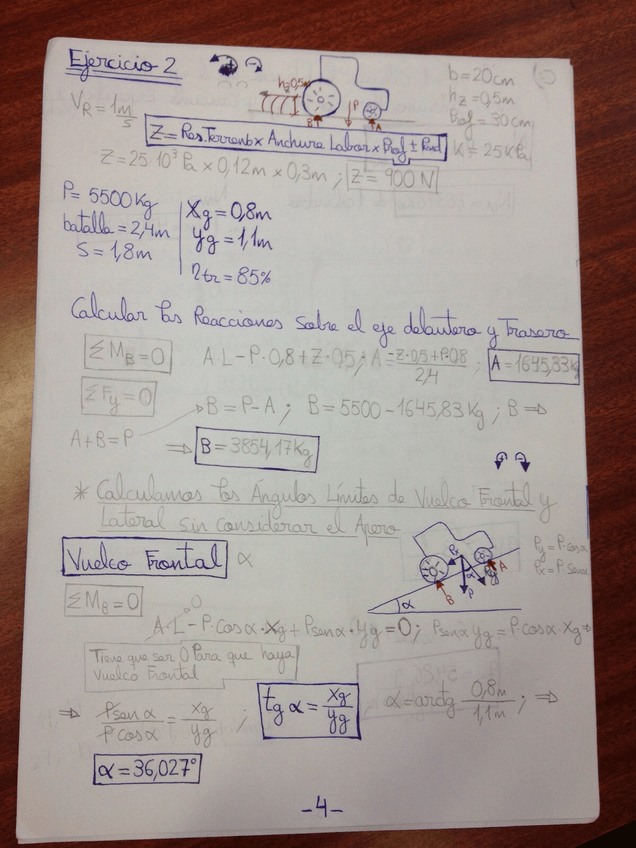 Ejercicio 2
b = 20cm
hz = 0,5m
Prof = 30cm
K = 25 KPa
hz=0,5m
P
B
A
VR = 1 m/s
Z = Res.Terreno x Anchura Labor x Prof ± Pend
Z = 25·10³ Pa x 0,12m x 0,3m ; Z = 900 N
P = 5500 Kg
batalla = 2,4m
S = 1,8m
Xg = 0,8m
yg = 1,1m
ηtr = 85%
Calcular las Reacciones sobre el eje delantero y Trasero
ΣMB=0 A·L - P·0,8 + Z·0,5 ; A = -Z·0,5 + P·0,8 / 2,4 ; A = 1645,83 Kg
ΣFy = 0
B = P - A ; B = 5500 - 1645,83 Kg ; B ⇒
A+B=P ⇒ B = 3854,17 Kg
* Calculamos los Ángulos Límites de Vuelco Frontal y
Lateral sin considerar el Apero
Vuelco Frontal α
Py = P·cosα
Px = P·senα
Px
α
A
B
P
α
ΣMB=0
0
A·L - P·cosα·Xg + Psenα·yg = 0 ; Psenα yg = P·cosα·Xg ⇒
Tiene que ser 0 Para que haya
Vuelco Frontal
⇒ Psenα / Pcosα = Xg / yg ; tg α = Xg / yg α = arctg 0,8m / 1,1m ; ⇒
α = 36,027°
-4-